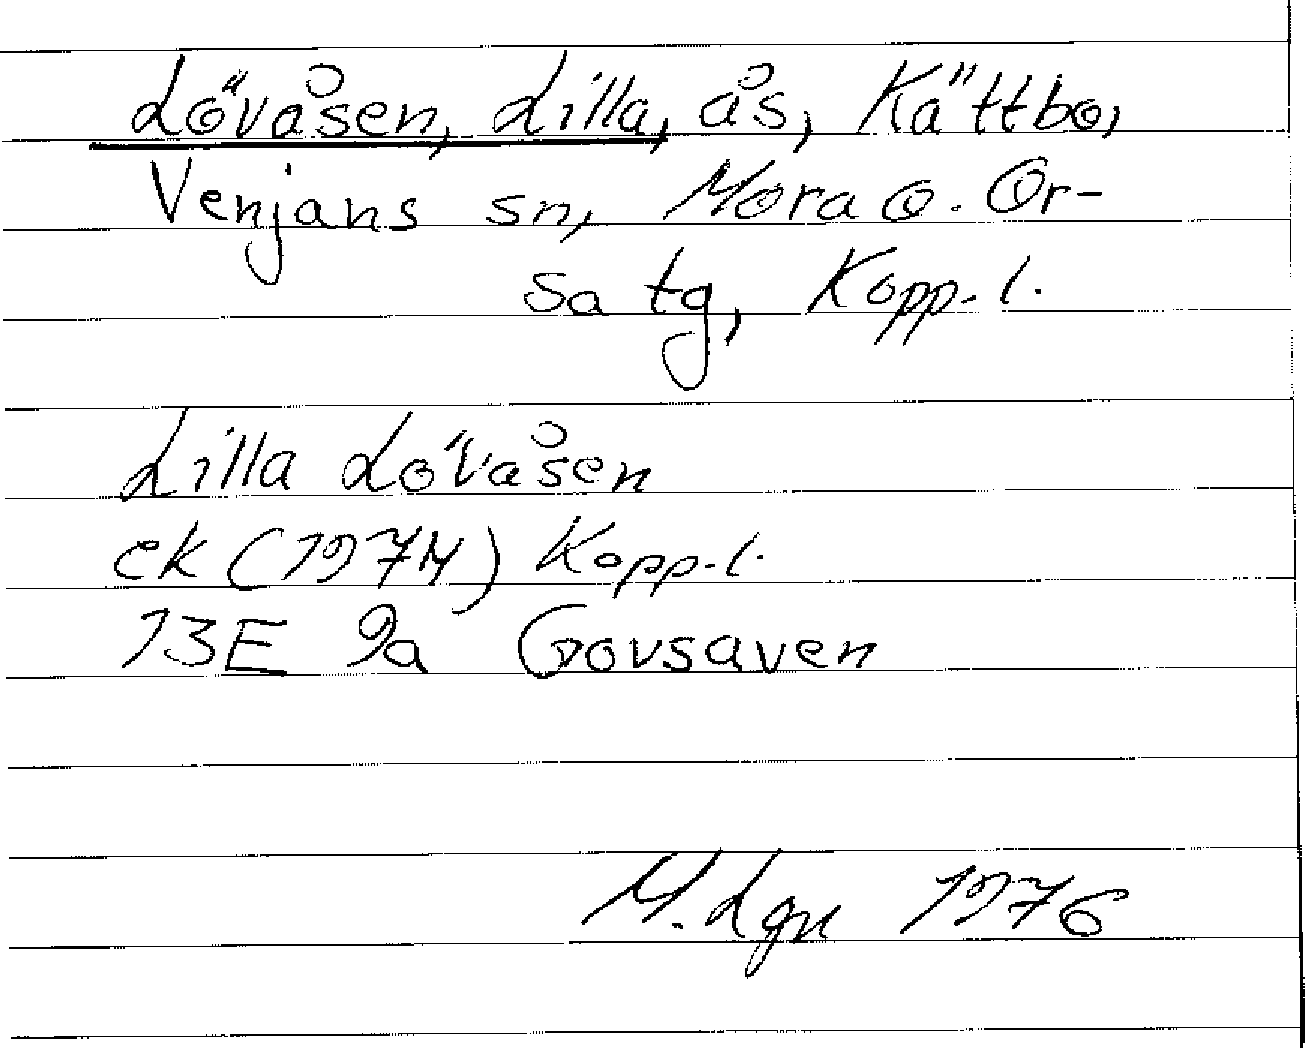 Lövåsen, Lilla, ås, Kättbo,
Venjans sn, Mora o. Or-
sa tg, Kopp. l.
Lilla Lövåsen
ek (1974) Kopp. l.
13E 9a Govsaven
M. Lgn 1976